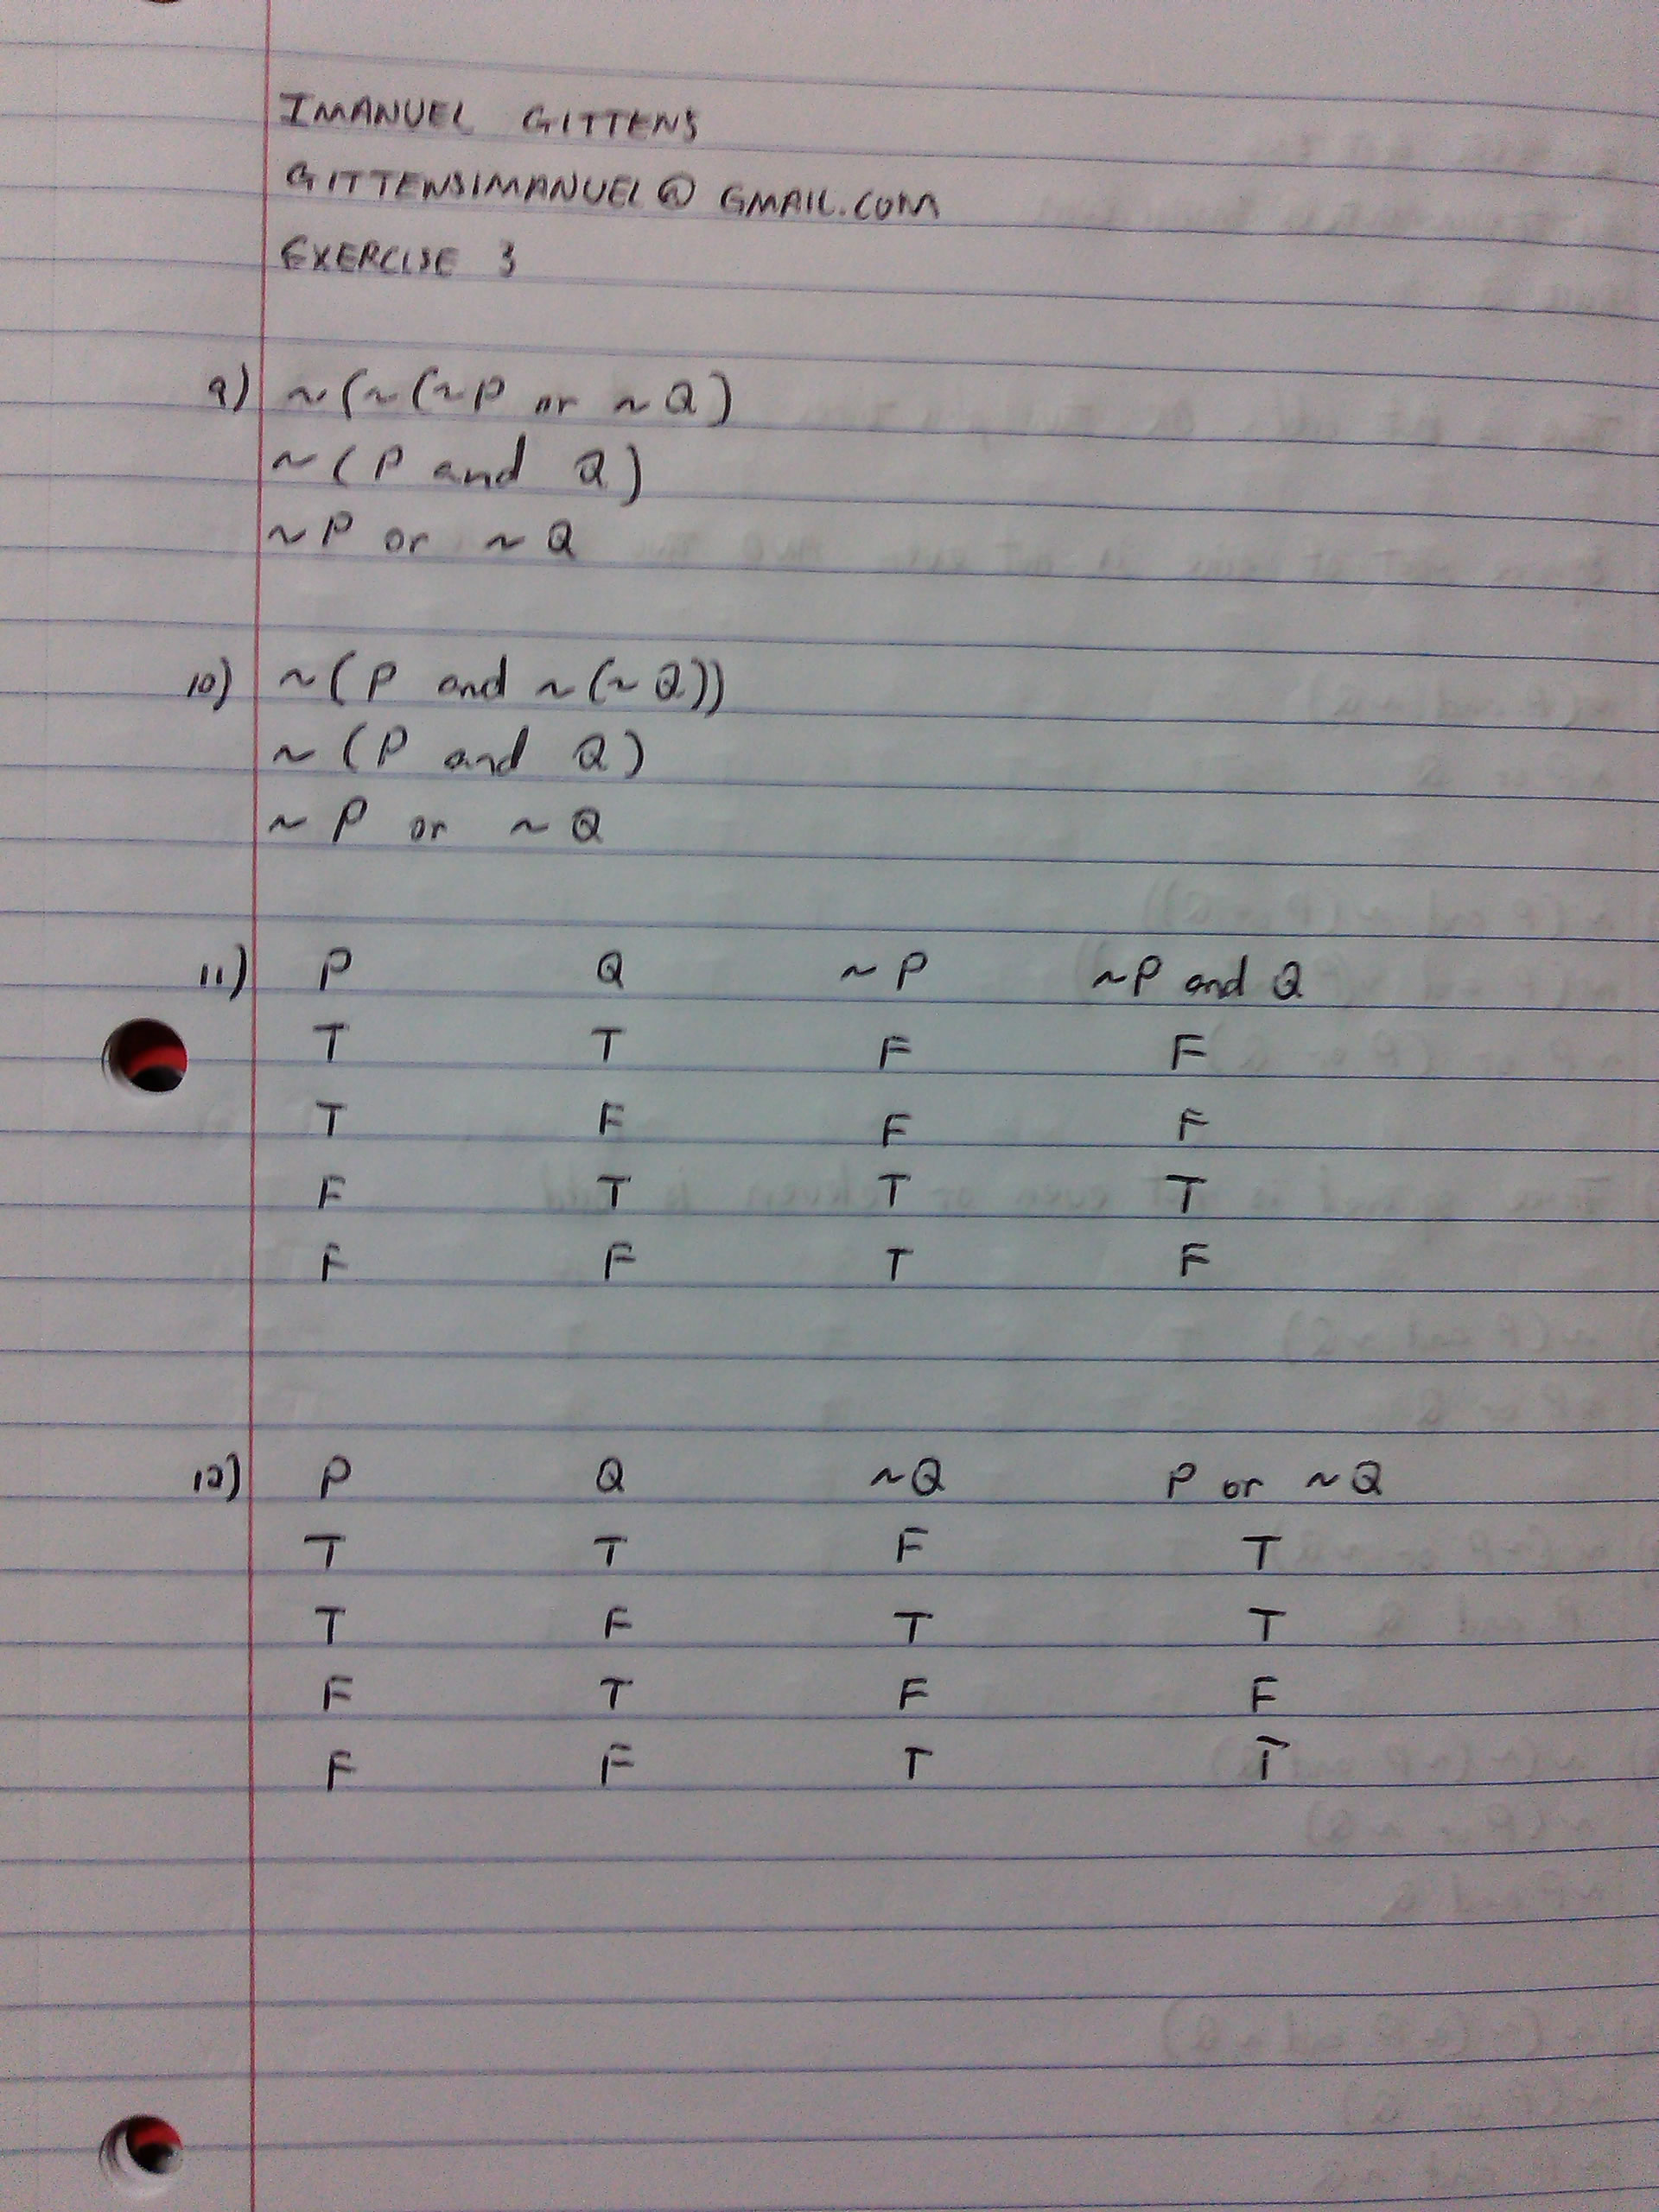 IMANUEL GITTENS
GITTENSIMANUEL@GMAIL.COM
EXERCISE 3
9) ~(~(~P or ~Q)
~(P and Q)
~P or ~Q
10) ~(P and ~(~Q))
~(P and Q)
~P or ~Q
11) P Q ~P ~P and Q
T T F F
T F F F
F T T T
F F T F
12) P Q ~Q P or ~Q
T T F T
T F T T
F T F F
F F T T